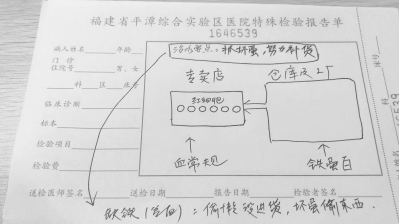 福建省平潭综合实验区医院特殊检验报告单
1646539
病人姓名 年龄
治疗要点：抓坏蛋，努力补货
门诊
住院号 男、女
专卖店
仓库及工厂
科 区 床号
临床诊断
红细胞
标本
检验项目
血常规
铁蛋白
检验费
送检医师签名 送检日期 报告日期 检验者签名
：偷懒没进货，坏蛋偷东西.